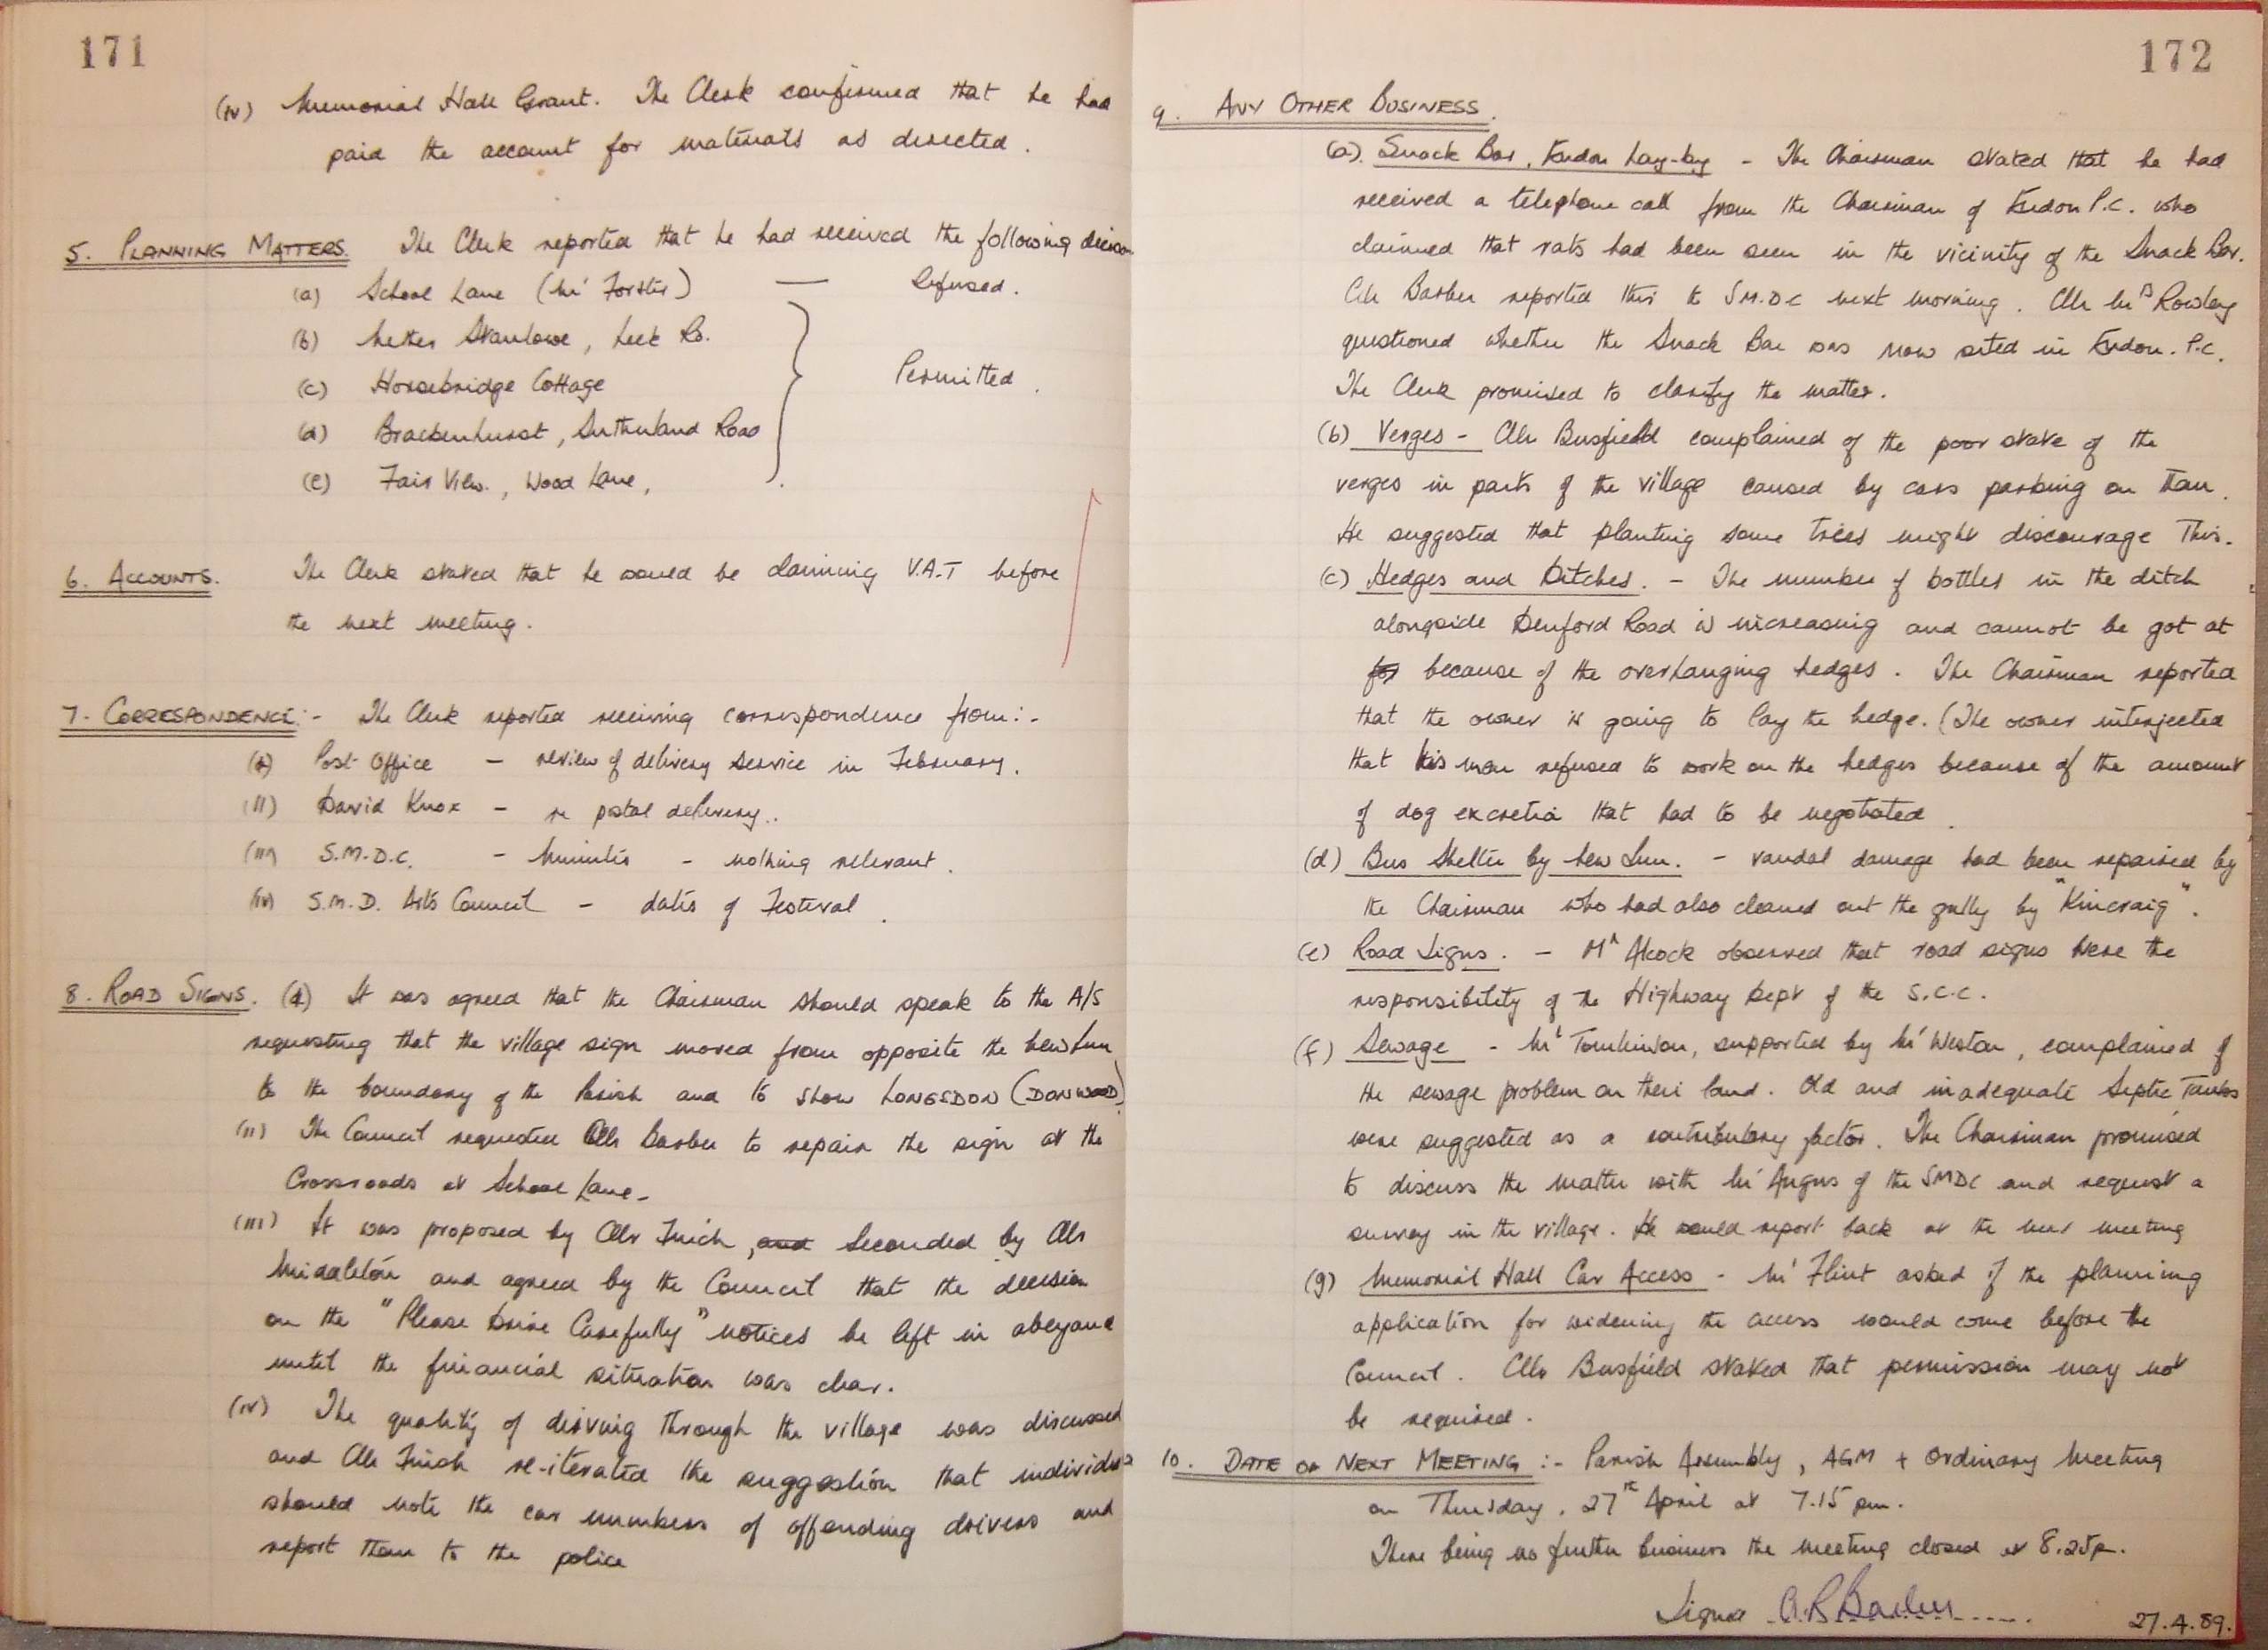 171
(iv) Memorial Hall Grant. The Clerk confirmed that he had
paid the account for materials as directed.
5. PLANNING MATTERS. The Clerk reported that he had received the following decision
(a) School Lane (Mr Forster) — Refused.
(b) Nether Stanlowe, Leek Rd.
(c) Horsebridge Cottage
Permitted.
(d) Brackenhurst, Sutherland Road
(e) Fair View., Wood Lane,
6. ACCOUNTS. The Clerk stated that he would be claiming V.A.T before
the next meeting.
7. CORRESPONDENCE:- The Clerk reported receiving correspondence from:-
(i) Post Office — review of delivery service in February.
(ii) David Knox — re postal delivery..
(iii) S.M.D.C. - Minutes - nothing relevant.
(iv) S.M.D. Arts Council - dates of Festival.
8. ROAD SIGNS. (i) It was agreed that the Chairman should speak to the A/S
requesting that the village sign moved from opposite the New Inn
to the boundary of the Parish and to show LONGSDON (DONWOOD)
(ii) The Council requested Cllr Barber to repair the sign at the
Crossroads at School Lane.
(iii) It was proposed by Cllr Finich, and seconded by Cllr
Middleton and agreed by the Council that the decision
on the "Please Drive Carefully" notices be left in abeyance
until the financial situation was clear.
(iv) The quality of driving through the village was discussed
and Cllr Finich re-iterated the suggestion that individuals
should note the car numbers of offending drivers and
report them to the police
172
9. ANY OTHER BUSINESS.
(a). Snack Bar, Endon Lay-by - The Chairman stated that he had
received a telephone call from the Chairman of Endon P.C. who
claimed that rats had been seen in the vicinity of the Snack Bar.
Cllr Barber reported this to S.M.D.C next morning. Cllr Mrs Rowley
questioned whether the Snack Bar was now sited in Endon. P.C.
The Clerk promised to clarify the matter.
(b) Verges - Cllr Busfield complained of the poor state of the
verges in parts of the village caused by cars parking on them.
He suggested that planting some trees might discourage this.
(c) Hedges and Ditches. - The number of bottles in the ditch
alongside Denford Road is increasing and cannot be got at
for because of the overhanging hedges. The Chairman reported
that the owner is going to lay the hedge. (The owner interjected
that his man refused to work on the hedges because of the amount
of dog excretia that had to be negotiated.
(d) Bus Shelter by New Inn. - vandal damage had been repaired by
the Chairman who had also cleaned out the gully by "Kincraig".
(e) Road Signs. - Mr Alcock observed that road signs were the
responsibility of the Highway Dept of the S.C.C.
(f) Sewage - Mr Tomkinson, supported by Mr Weston, complained of
the sewage problem on their land. Old and inadequate Septic Tanks
were suggested as a contributory factor. The Chairman promised
to discuss the matter with Mr Angus of the SMDC and request a
survey in the village. He would report back at the next meeting
(g) Memorial Hall Car Access - Mr Flint asked if the planning
application for widening the access would come before the
Council. Cllr Busfield stated that permission may not
be required.
10. DATE OF NEXT MEETING:- Parish Assembly, AGM + Ordinary Meeting
on Thursday, 27th April at 7.15 pm.
There being no further business the meeting closed at 8.25p.
Signed
27.4.89.